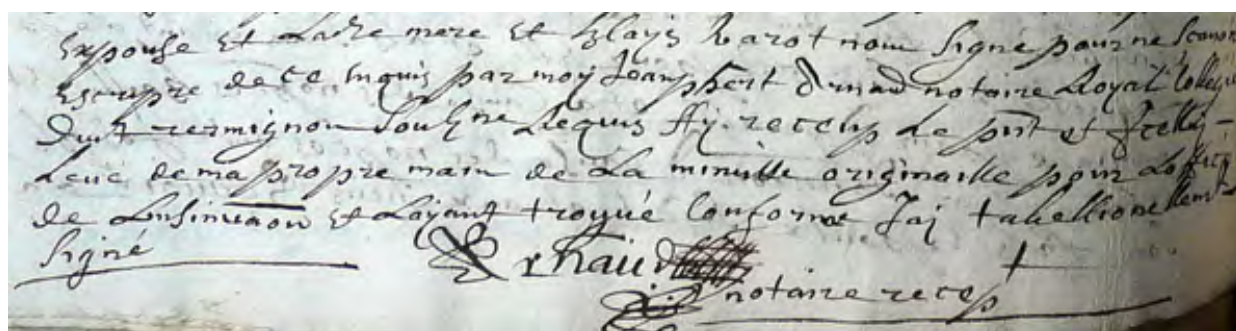 Expouse et Ladte mere et Clays Barot nont signé pour ne scavoir
Escripre de ce Enquis par moy Jean notaire Loyal Collegie
Duct Termignon soubsigne Requis Ay receup Le pnt et Jcelluy
Levé de ma propre main de La minutte originalle pour Loffice
de Linsinuaon et Layant trouvé Conforme Jaj tabellionellemt
signé
notaire recept